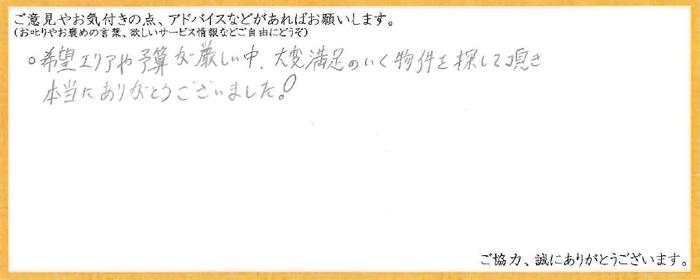 ご意見やお気付きの点、アドバイスなどがあればお願いします。
(お叱りやお褒めの言葉、欲しいサービス情報などご自由にどうぞ)
○希望エリアや予算が厳しい中、大変満足のいく物件を探して頂き
本当にありがとうございました!
ご協力、誠にありがとうございます。